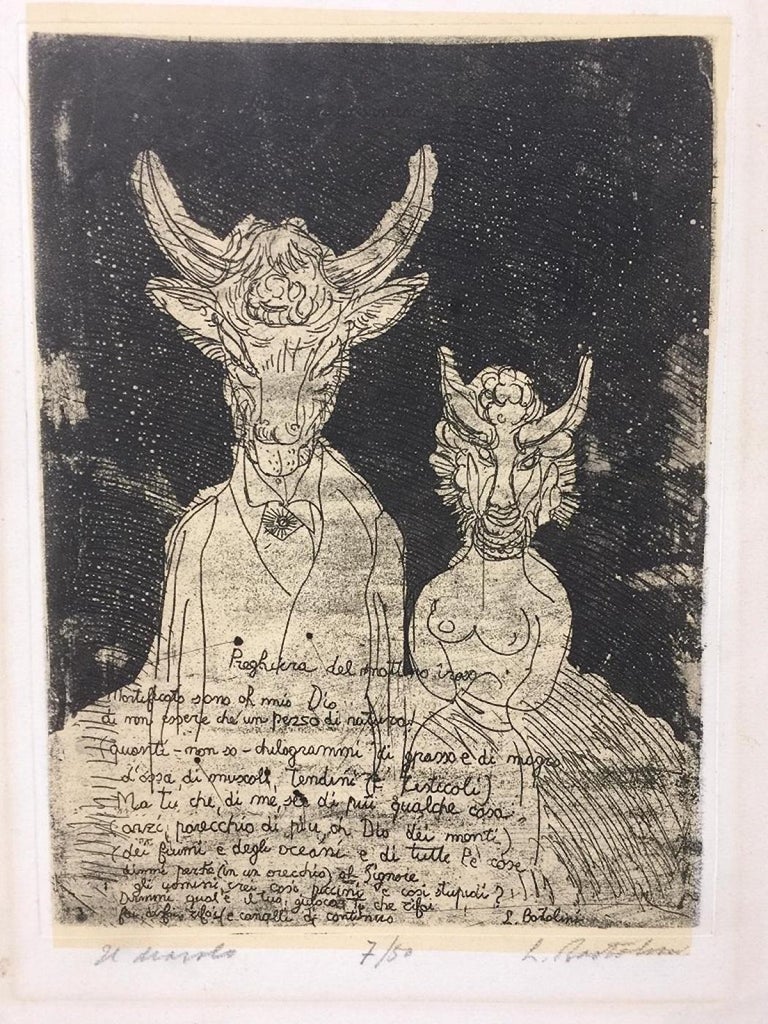 Preghiera del mattino
Mortificato sono oh mio Dio
di non essere che un pezzo di natura
quanti - non so - chilogrammi di grasso e di magro
d'ossa, di muscoli, Tendini (e Testicoli)
Ma tu che, di me, sei di più qualche cosa
(anzi, parecchio di più, oh Dio dei monti)
(dei fiumi e degli oceani e di tutte le cose
dimmi perché (in un orecchio) oh Signore
gli uomini così piccini e così stupidi?
Dimmi qual'è il tuo giuoco tu che rifai
fai disfai rifai e cancelli di continuo
L. Bartolini
Il diavolo 7/50 L. Bartolini